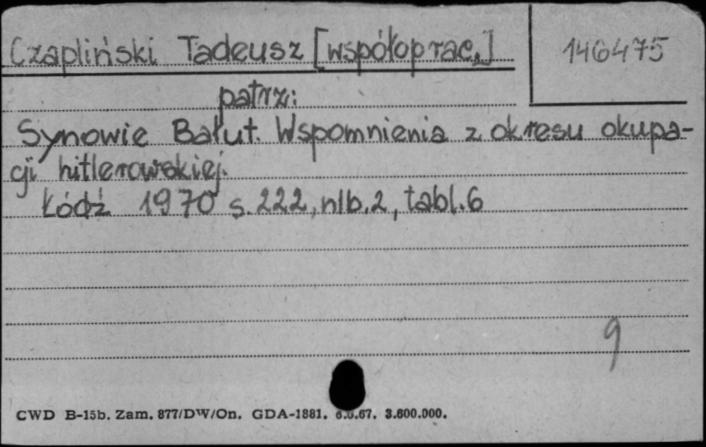 Czapliński Tadeusz [współoprac.]
146475
patrz:
Synowie Bałut. Wspomnienia z okresu okupa-
cji hitlerowskiej.
Łódź 1970 s. 222, nlb. 2, tabl. 6
9
CWD B-15b. Zam. 877/DW/On. GDA-1881. 6.6.67. 3.600.000.